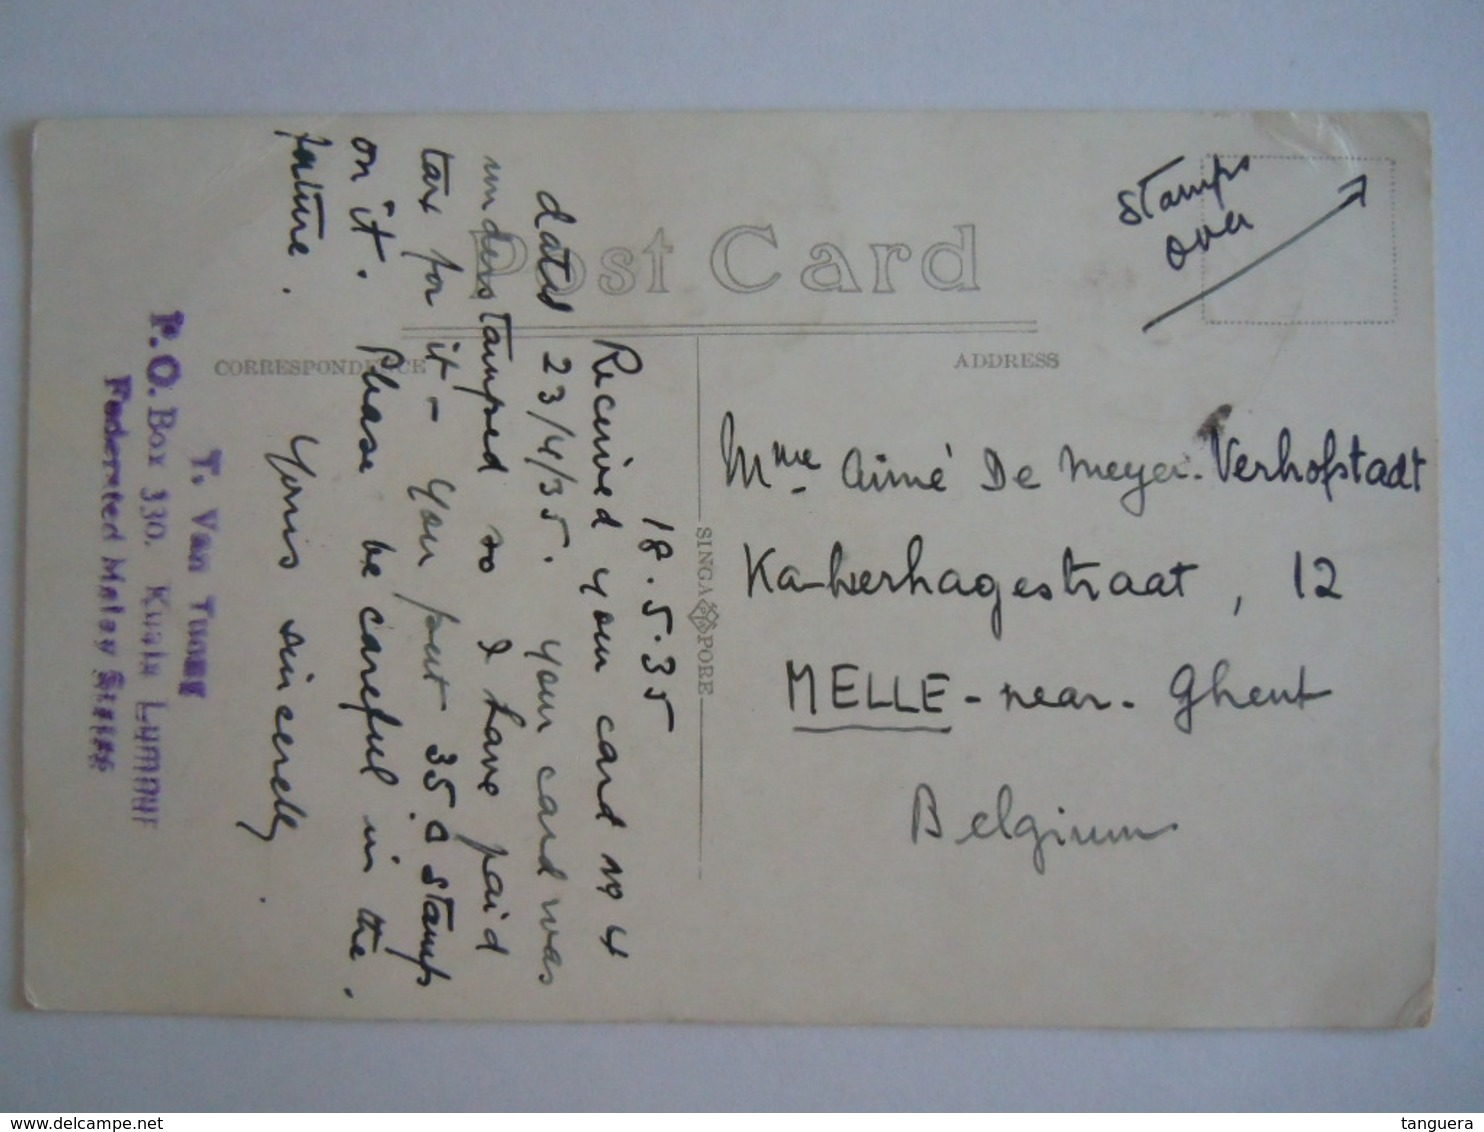 Post Card
CORRESPONDENCE
ADDRESS
SINGAPORE
Stamps
over
18.5.35
Received your card no 4
dated 23/4/35. your card was
understamped so I have paid
tax for it - you put 35 c stamps
on it. Please be careful in the
future.
Yours sincerely
T. Van
P.O. Box 330. Kuala
Federated Malay States
Mme Aimé De Meyer-Verhofstadt
Kalverhagestraat, 12
MELLE - near - Ghent
Belgium
delcampe.net
tanguera